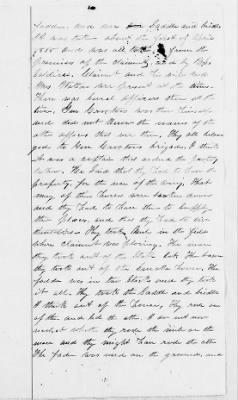 fodder. And one saddle and bridle
It was taken about the first of April
1865 and was all taken from the
premises of the claimant, and by
soldiers. Claimant and his wife and
Mrs Watson were present at the time.
There was several officers there at the
time. Gen Croxton was there himself
and did not know the names of the
other officers that was there. They all belon
ged to Gen Croxtons brigade. I think
it was a captain that ordered the property
taken. He said that they had to have the
property, for the use of the army, that
many of their horses were broken down
and they had to have them to supply
their places, and that they had to live
themselves They took mule in the field
where claimant was plowing. The mare
they took out of the stable lot. The bacon
they took out of the smoke house. The
fodder was in two stacks and they took
it all. They took the saddle and bridle
I think out of the house, They rode one
of them and led the other. I do not now
recollect whether they rode the mule or the
mare and they might have rode the other
The fodder was used on the ground, and